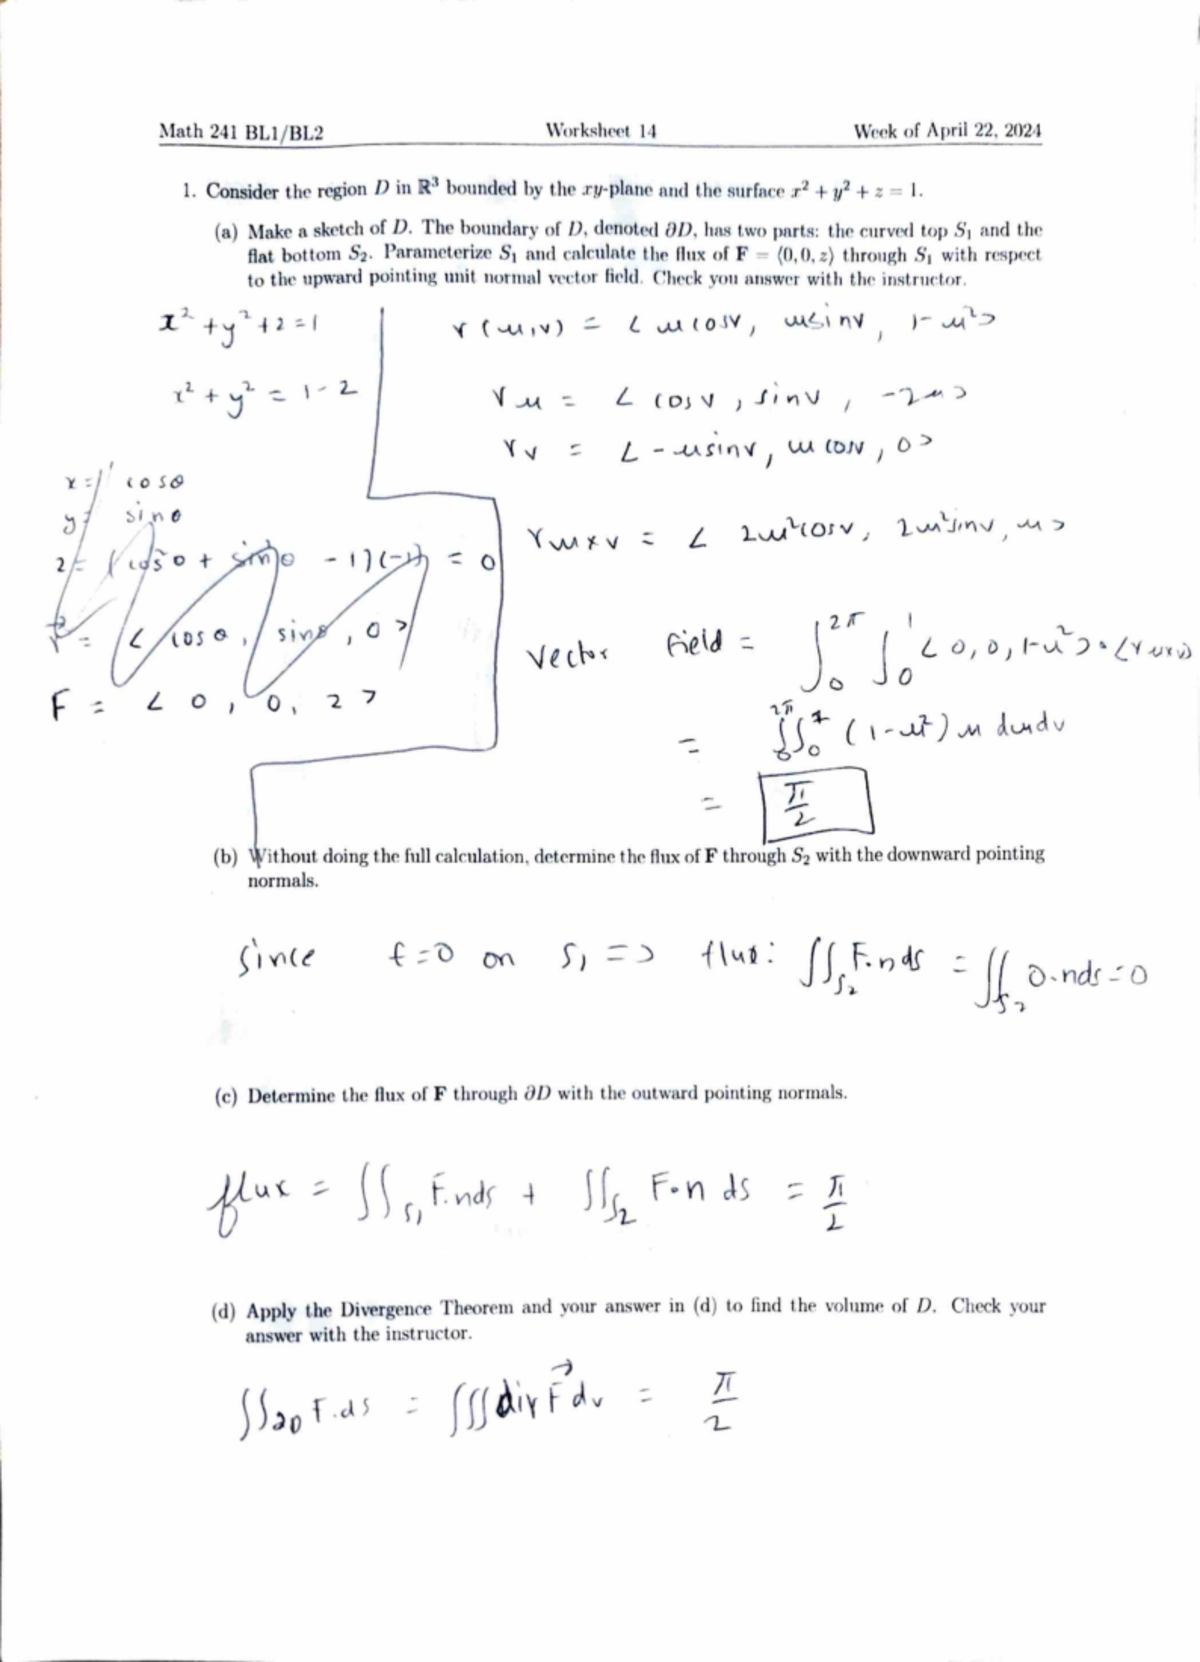 Math 241 BL1/BL2 Worksheet 14 Week of April 22, 2024
1. Consider the region D in ℝ³ bounded by the xy-plane and the surface x² + y² + z = 1.
(a) Make a sketch of D. The boundary of D, denoted ∂D, has two parts: the curved top S₁ and the
flat bottom S₂. Parameterize S₁ and calculate the flux of F = ⟨0, 0, z⟩ through S₁ with respect
to the upward pointing unit normal vector field. Check you answer with the instructor.
x² + y² + z = 1
x² + y² = 1 - z
x = cosθ
y = sinθ
z = (cos²θ + sin²θ - 1)(-1) = 0
r = < cosθ, sinθ, 0 >
F = < 0, 0, z >
r(u,v) = < u cosv, u sinv, 1-u² >
r u = < cosv, sinv, -2u >
r v = < -u sinv, u cosv, 0 >
r u×v = < 2u²cosv, 2u²sinv, u >
Vector field = ∫₀^2π ∫₀^1 < 0, 0, 1-u² > · < r u×v >
= ∫₀^2π ∫₀^1 (1-u²) u du dv
= π/2
(b) Without doing the full calculation, determine the flux of F through S₂ with the downward pointing
normals.
Since f=0 on S₁ => flux: ∬_S₂ F·nds = ∬_S₂ 0·nds = 0
(c) Determine the flux of F through ∂D with the outward pointing normals.
flux = ∬_S₁ F·nds + ∬_S₂ F·n ds = π/2
(d) Apply the Divergence Theorem and your answer in (d) to find the volume of D. Check your
answer with the instructor.
∬_∂D F·ds = ∭ div F⃗ dv = π/2